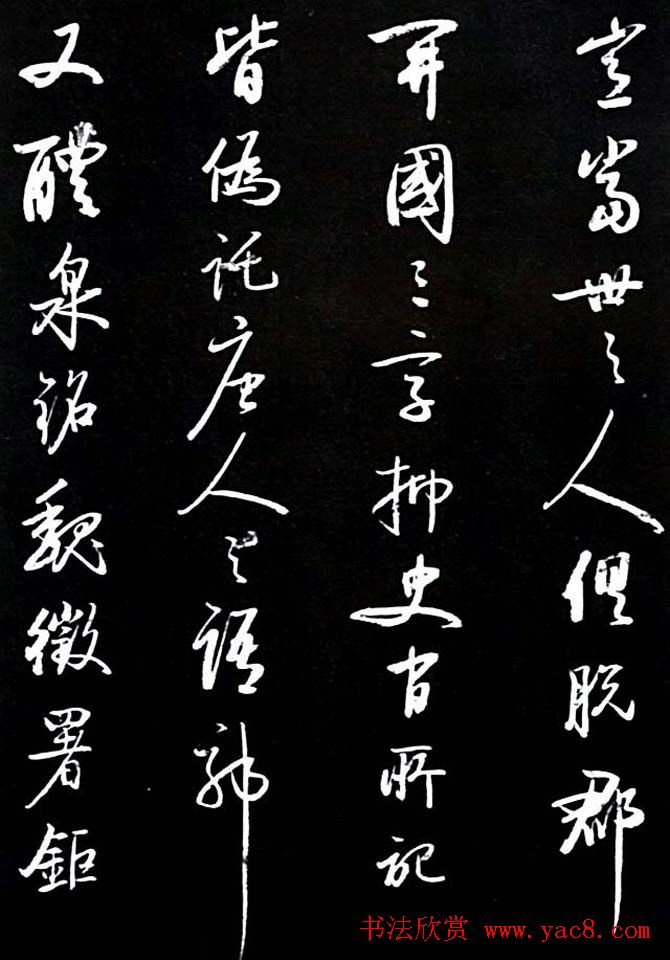 豈當世之人俱脱郡
開國三字抑史官所記
皆偽託唐人之語耶
又醴泉銘魏徵署鉅
书法欣赏 www.yac8.com